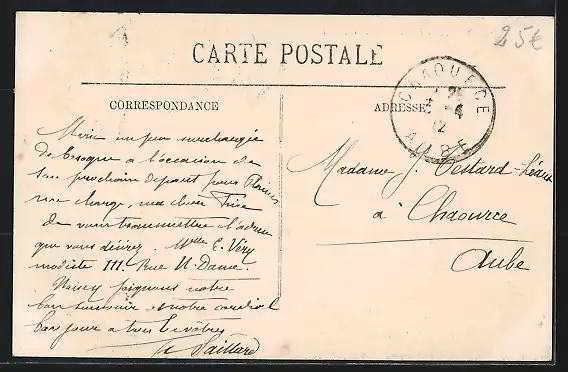 25€
CARTE POSTALE
CORRESPONDANCE
ADRESSE
CHAOURCE
4
12
AUBE
Marie un peu surchargée
de besogne à l'occasion de
son prochain départ pour
me charge, ma chère
de vous transmettre l'adresse
que vous désirez. Mlle E. Véry
modiste 111. Rue N. Dame.
joignons notre
bon souvenir et notre cordial
bonjour à tous les vôtres
Saillard
Madame J.
à Chaource
Aube